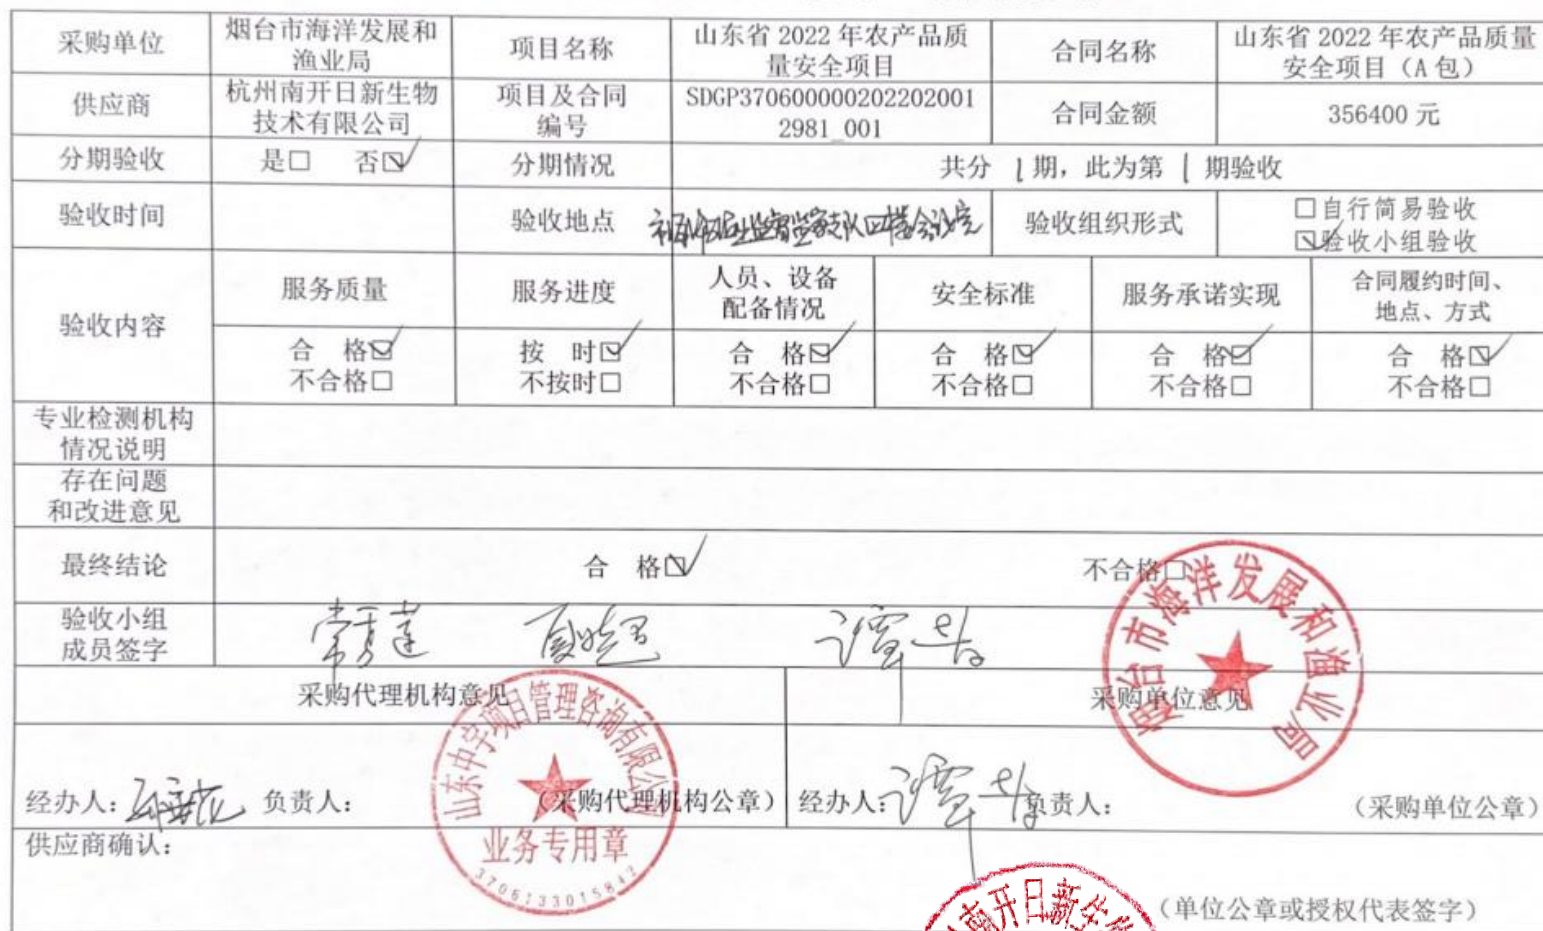 采购单位
烟台市海洋发展和
渔业局
项目名称
山东省 2022 年农产品质
量安全项目
合同名称
山东省 2022 年农产品质量
安全项目（A 包）
供应商
杭州南开日新生物
技术有限公司
项目及合同
编号
SDGP370600000202202001
2981_001
合同金额
356400 元
分期验收
是□ 否☑
分期情况
共分 1 期，此为第 1 期验收
验收时间
验收地点
四楼会议室
验收组织形式
□自行简易验收
☑验收小组验收
验收内容
服务质量
服务进度
人员、设备
配备情况
安全标准
服务承诺实现
合同履约时间、
地点、方式
合 格☑
不合格□
按 时☑
不按时□
合 格☑
不合格□
合 格☑
不合格□
合 格☑
不合格□
合 格☑
不合格□
专业检测机构
情况说明
存在问题
和改进意见
最终结论
合 格☑
不合格□
验收小组
成员签字
采购代理机构意见
采购单位意见
经办人： 负责人： （采购代理机构公章）
经办人： 负责人： （采购单位公章）
供应商确认：
（单位公章或授权代表签字）
烟台市海洋发展和渔业局
山东中宇项目管理咨询有限公司
业务专用章
3706133015842
南开日新生物